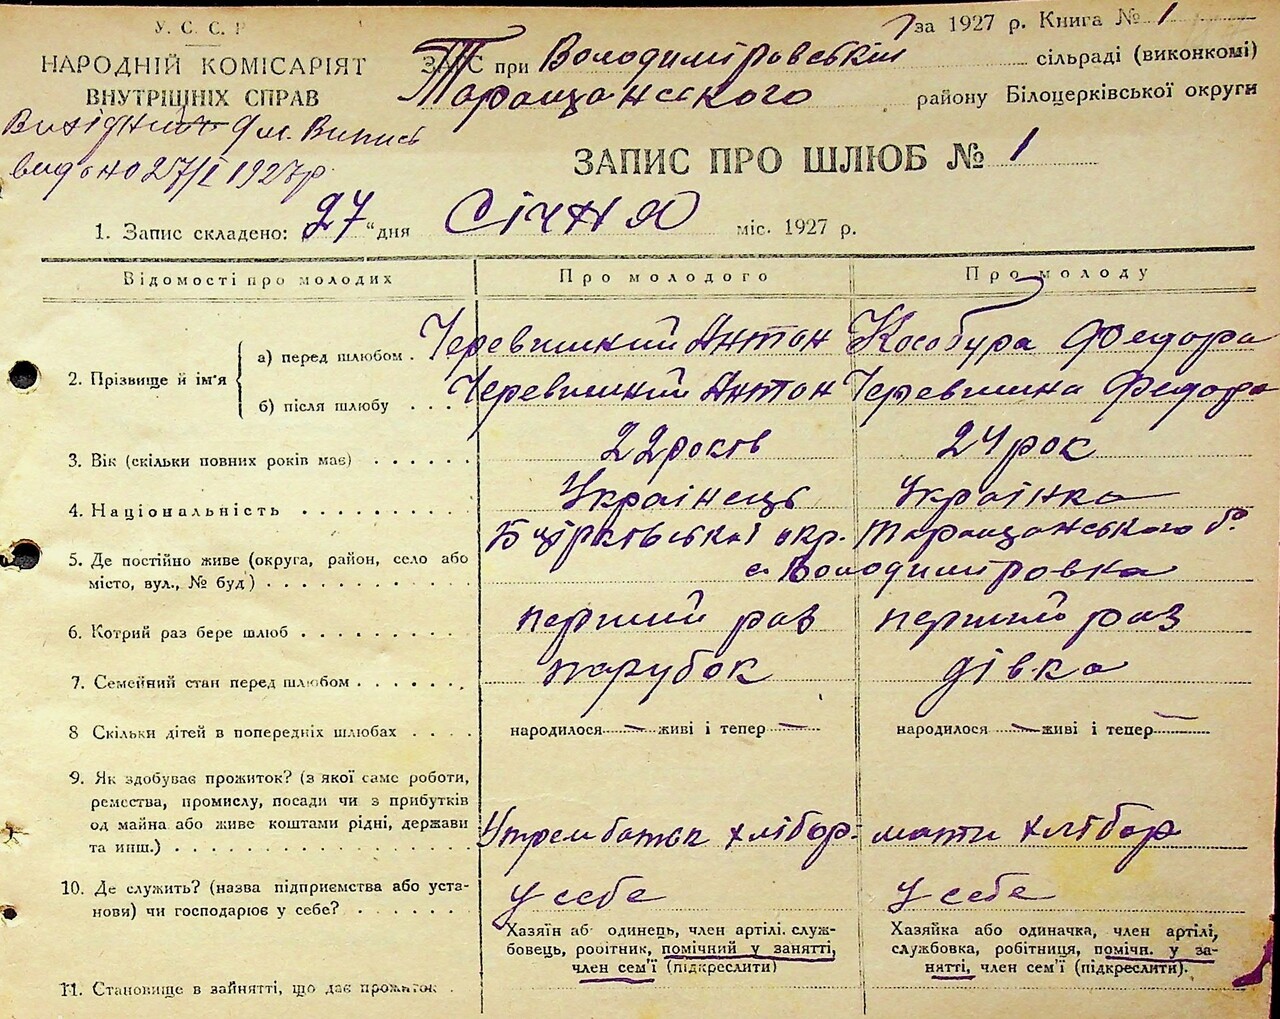 У. С. С. Р
за 1927 р. Книга № 1
НАРОДНІЙ КОМІСАРІЯТ
ВНУТРІШНІХ СПРАВ
ЗАГС при Володиміровській сільраді (виконкомі)
Таращанського району Білоцерківської округи
Випись
видано 27/I 1927р.
ЗАПИС ПРО ШЛЮБ № 1
1. Запис складено: 27 "дня Січня міс. 1927 р.
Відомості про молодих Про молодого Про молоду
2. Прізвище й ім'я
а) перед шлюбом . Черевишкий Антон Кособура Федора
б) після шлюбу . . . Черевишкий Антон Черевишина Федора
3. Вік (скільки повних років має) . . . . . . 22 років 24 рок
4. Національність . . . . . . . . . . Українець Українка
5. Де постійно живе (округа, район, село або місто, вул., № буд) . . . . . . . . . . . Бцірківської окр. Таращанського р.
с. Володиміровка
6. Котрий раз бере шлюб . . . . . . . . . . перший раз перший раз
7. Семейний стан перед шлюбом . . . . . . . парубок дівка
8 Скільки дітей в попередніх шлюбах . . . . народилося — живі і тепер — народилося — живі і тепер —
9. Як здобуває прожиток? (з якої саме роботи,
ремества, промислу, посади чи з прибутків
од майна або живе коштами рідні, держави
та инш.) . . . . . . . . . . . . . . . . Утрем батьк хлібор. мати хлібор
10. Де служить? (назва підприємства або уста-
нови) чи господарює у себе? . . . . . . у себе у себе
Хазяїн аб одинець, член артілі. служ-
бовець, робітник, помічний у занятті,
член сем'ї (підкреслити)
Хазяйка або одиначка, член артілі,
службовка, робітниця, помічн. у за-
нятті, член сем'ї (підкреслити).
11. Становище в зайнятті, що дає прожиток .